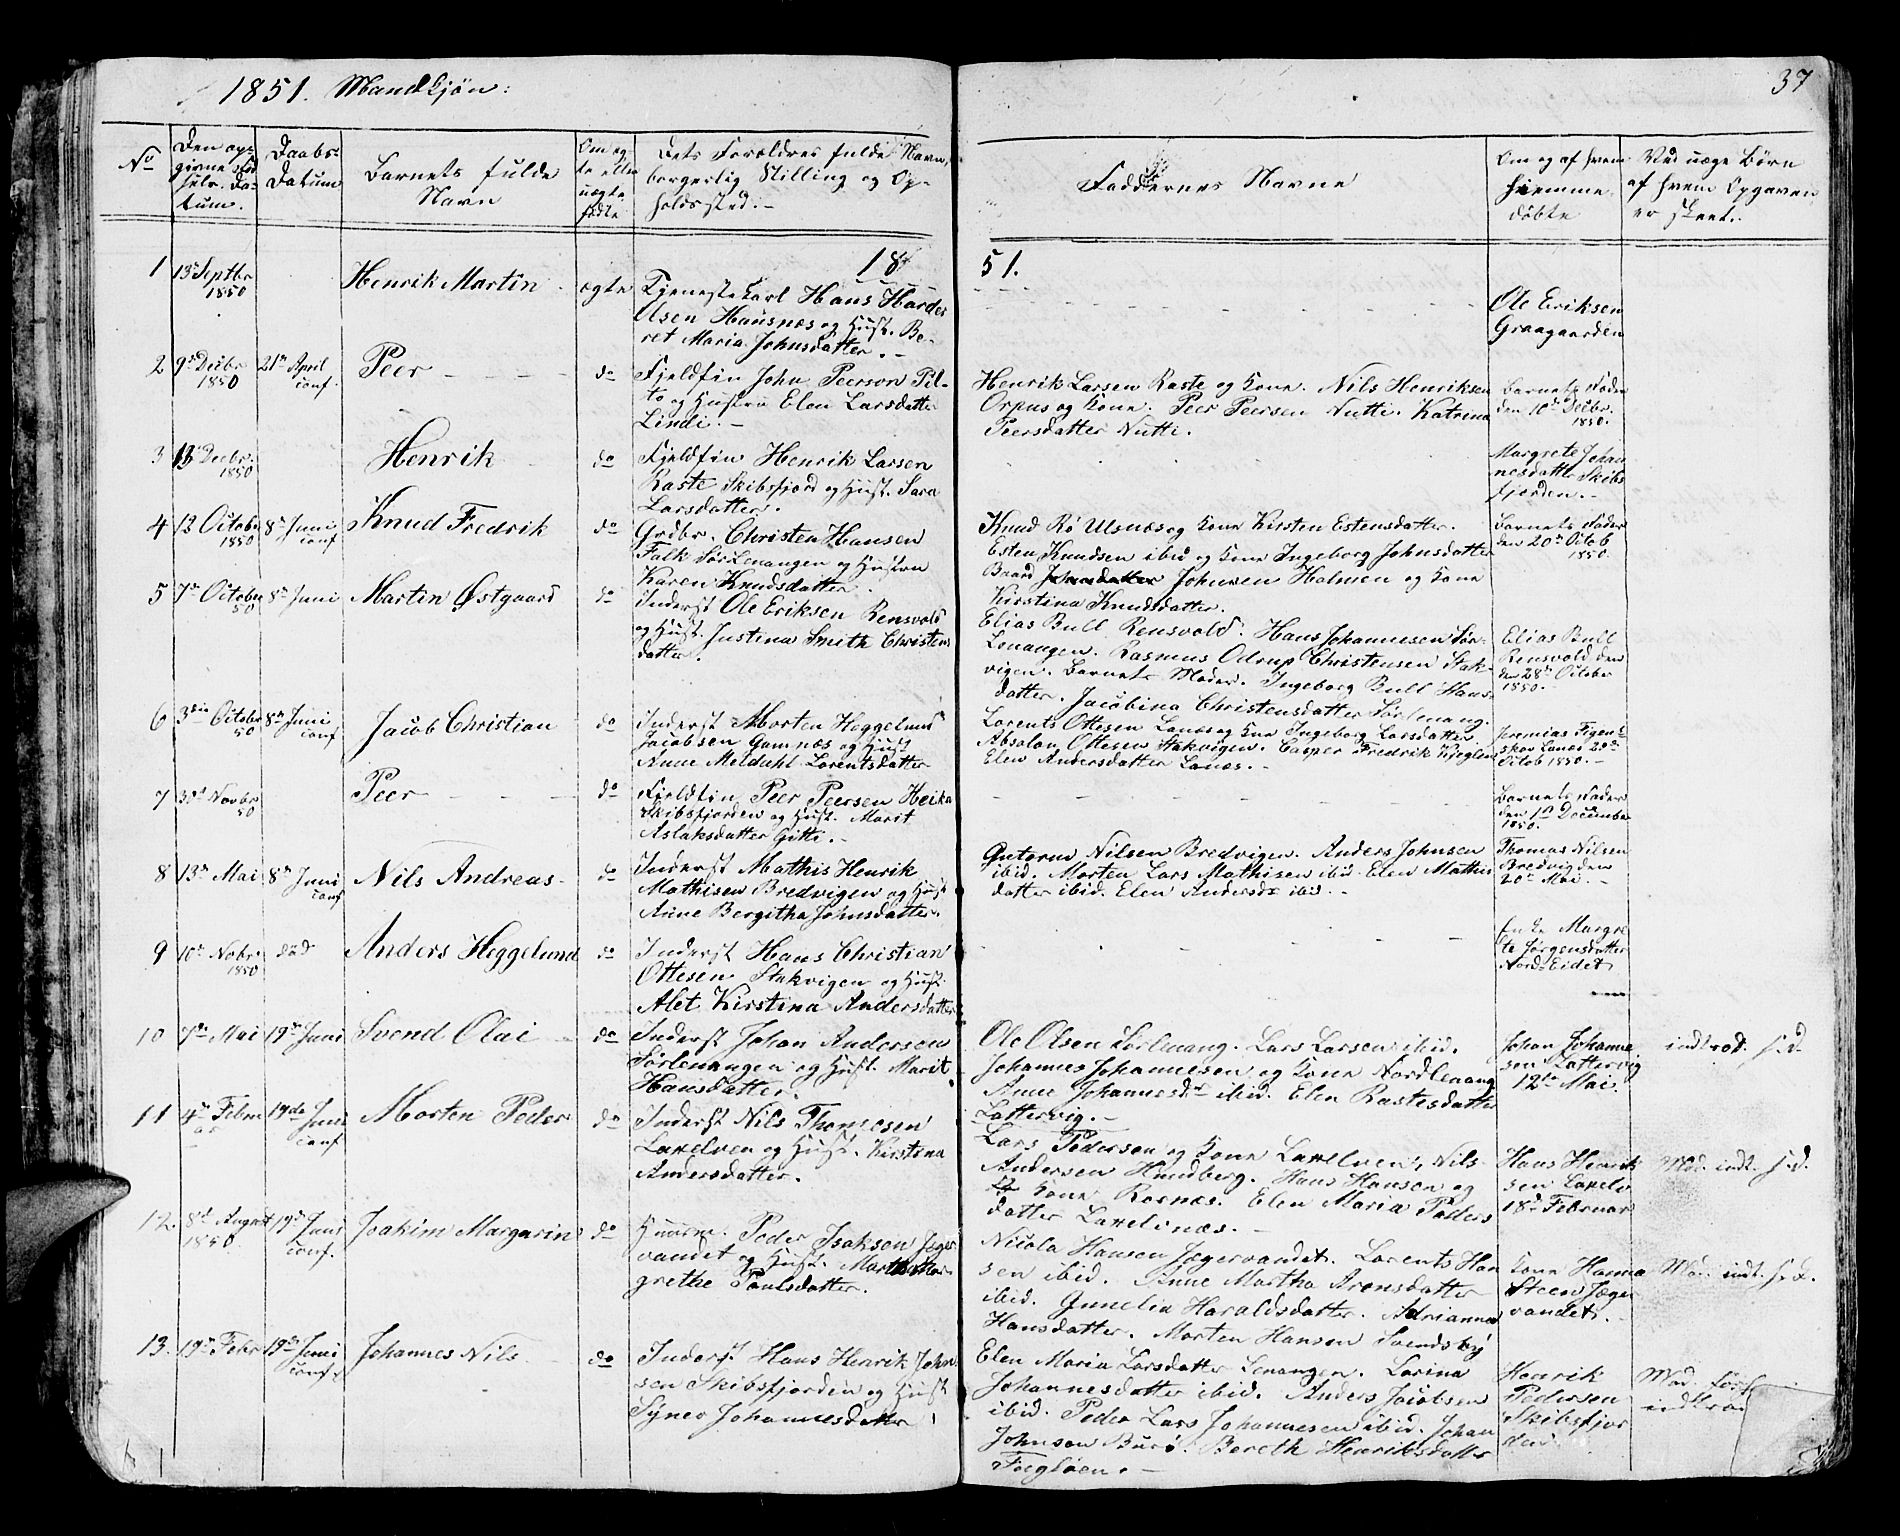 1851. Mandkjøn:
37
No
Den op-
givne Fød-
sels Da-
tum.
Daabs-
Datum
Barnets fulde
Navn
Om æg-
te eller
uægte
fødte
Dets Forældres fulde Navn,
borgerlig Stilling og Op-
holdssted.-
Faddernes Navne
Om og af hvem
hjemme-
døbte
Ved uægte Børn
af hvem Opgaven
er skeet.
18
51.
1
13de Septbr
1850
Henrik Martin
ægte
Tjenestekarl Hans Harder
Olsen Hansnæs og Hust. Be-
ret Maria Johnsdatter.-
Ole Eriksen
Graagaarden
2
9de Decbr
1850
21de April
conf.
Peer
do
Fjeldfin John Peerson Pil-
to og Hustru Elen Larsdatter
Lindi.-
Henrik Larsen Raste og Kone. Nils Henriksen
Orpus og Kone. Peer Peersen Nutti. Katrina
Peersdatter Nutti.
Barnets Fader
den 10de Decbr.
1850.
3
13 Decbr.
1850
Henrik
do
Fjeldfin Henrik Larsen
Raste Skibsfjord og Hust. Sara
Larsdatter.
Margrete Johan-
nesdattr Skibs-
fjorden.-
4
12 Octobr
1850
8de Juni
conf
Knud Fredrik
do
Grdbr. Christen Hansen
Falk SørLenangen og Hustru
Karen Knudsdatter.
Knud Rø Ulsnæs og Kone Kirsten Estensdatter.
Esten Knudsen ibid og Kone Ingeborg Johnsdatter
Baard Johnsdatter Johnsen Holmen og Kone
Kirstina Knudsdatter.
Barnets Fader
den 20de Octob
1850.
5
7de October
50
8de Juni
Martin Østgaard
do
Inderst Ole Eriksen Rensvold
og Hust. Justina Smith Christens
datter.
Elias Bull Rensvold. Hans Johannesen Sør-
Lenangen. Rasmus Odrup Christensen Stak-
vigen. Barnets Moder. Ingeborg Bull Hans-
datter. Jacobina Christensdatter Sørlenang.
Elias Bull
Rensvold den
den 28de October
1850.-
6
3die Octobr
50
8de Juni
conf
Jacob Christian
do
Inderst Morten Heggelund
Jacobsen Gamnæs og Hust
Anne Meldahl Lorentsdatter
Lorents Ottesen Lanæs og Kone Ingeborg Larsdatter
Absalon Ottesen Stakvigen. Casper Fredrik Kjeglen
Elen Andersdatter Lanæs.-
Jeremias Figen-
skov Lanæs 20de
Octob 1850.-
7
30de Novbr
50
Peer
do
Fjeldfin Peer Peersen Heika
Skibsfjorden og Hust. Marit
Aslaksdatter Gitti.-
Barnets Fader
den 1ste December
1850.
8
13de Mai
8de Juni
conf
Nils Andreas
do
Inderst Mathis Henrik
Mathisen Bredvigen og Hust
Anne Bergitha Johnsdatter.
Gutorm Nilsen Bredvigen. Anders Johnsen
ibid. Morten Lars Mathisen ibid. Elen Mathis
datter ibid. Elen Andersdr ibid.-
Thomas Nilsen
Bredvig den
20de Mai.-
9
10de Nobr
1850
død
Anders Heggelund
do
Inderst Hans Christian
Ottesen Stakvigen og Hust.
Alet Kirstina Andersdatter
Enke Margre-
te Jørgensdatter
Nord-Eidet
10
7de Mai
19de Juni
Svend Olai
do
Inderst Johan Andersen
Sørlenangen og Hust. Marit
Hansdatter.
Ole Olsen Sørlenang. Lars Larsen ibid.
Johannes Johannesen og Kone Nordlenang
Anne Johannesdr ibid. Elen Rastesdatter
Lattervig.-
Johan Johanne-
sen Lattervig
12te Mai.
indtrod. s.d.
11
4de Febru
ar
19de Juni
conf
Morten Peder
do
Inderst Nils Thomesen
Laxelven og Hust. Kirstina
Andersdatter.
Lars Pedersen og Kone Laxelven, Nils
Andersen Hundberg. Hans Hansen og
Kone Rosnæs. Elen Maria Peders
datter Laxelvnæs.-
Hans Henrik-
sen Laxelv
18de Februar
Mod. indt. s.d.
12.
8de August
1850.
19de Juni
conf.
Joakim Margarin
do
Huusm. Peder Isaksen Jæger
vandet og Hust. Martha Mar-
grethe Paulsdatter.
Nicola Hansen Jægervandet. Lorents Han
sen ibid. Anne Martha Aronsdatter
ibid. Gunelia Haraldsdatter. Adrianna
Hansdatter. Morten Hansen Svendsby
Kone Hanna
Steen Jæger
vandet.-
Mod. indt. s.d.
13.
19de Febr
19de Juni
conf.
Johannes Nils
do
Inderst Hans Henrik John
sen Skibsfjorden og Hust
Synev Johannesdatter.
Elen Maria Larsdatter Lenangen. Lorina
Johannesdatter ibid. Anders Jacobsen
ibid. Peder Lars Johannesen ibid. Johan
Johnsen Burø. Bereth Henriksdatter
Fugløen.-
Henrik
Pedersen
Skibsfjor
den.
Mod. forh
indtrod